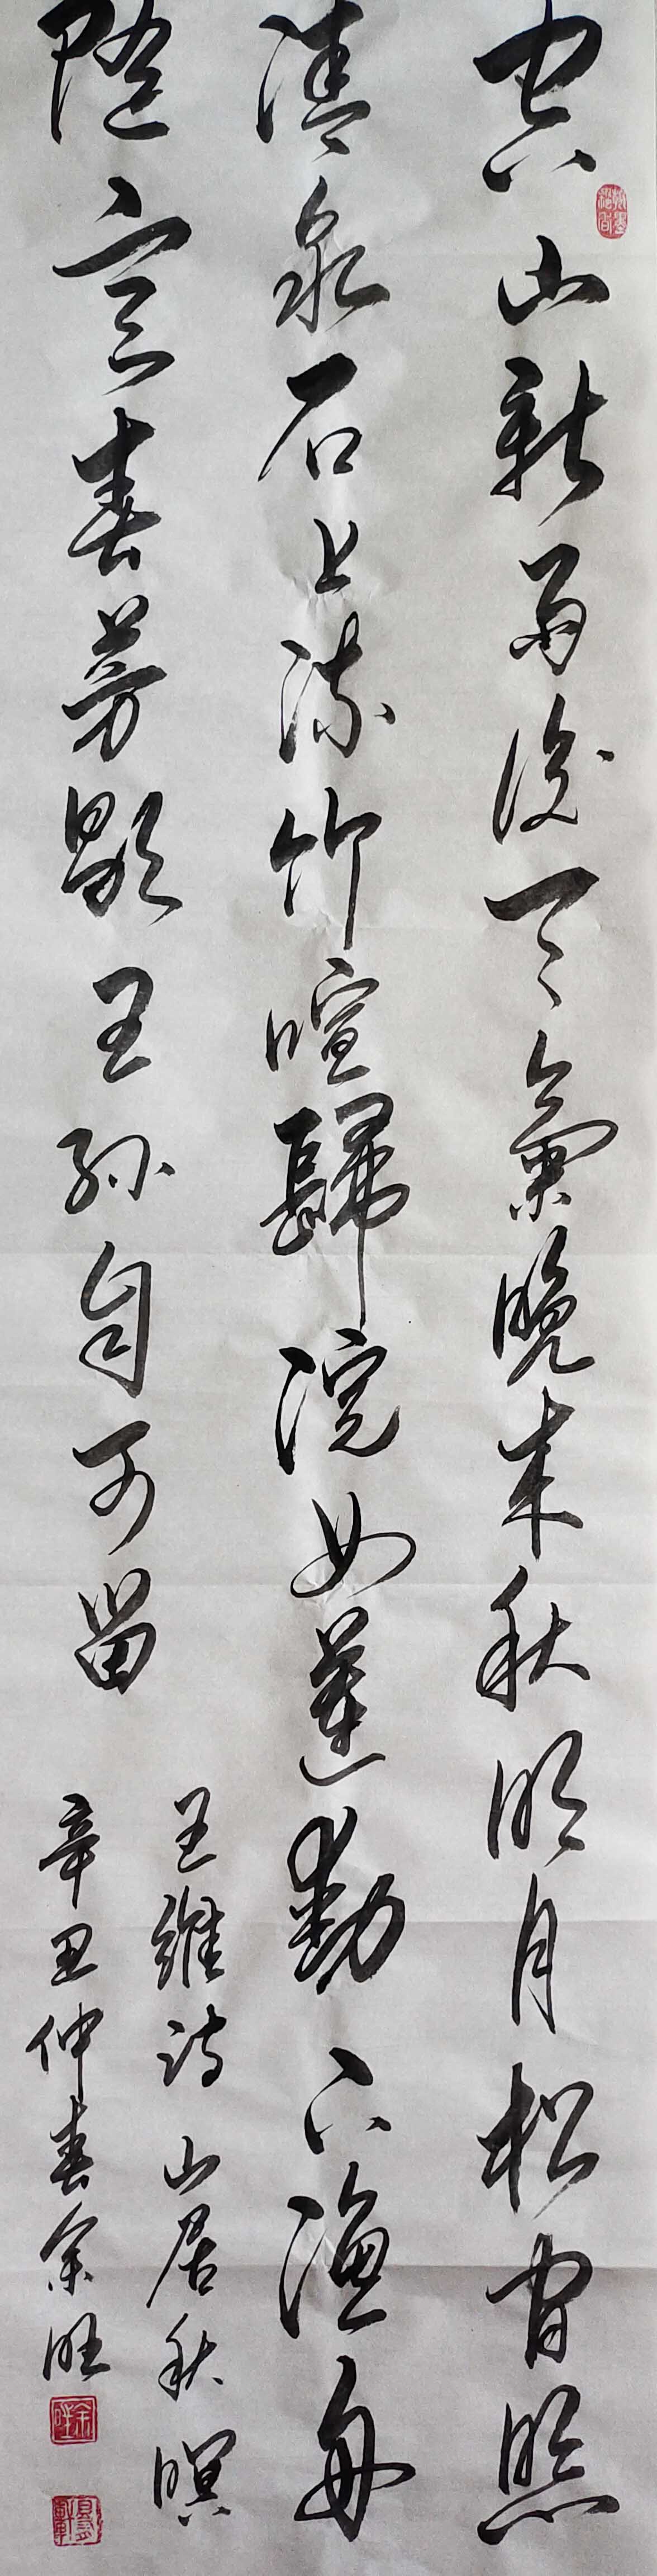 空山新雨後天氣晚来秋明月松间照
清泉石上流竹喧歸浣女蓮動下漁舟
随意春芳歇王孙自可留
王維诗山居秋暝
辛丑仲春余旺